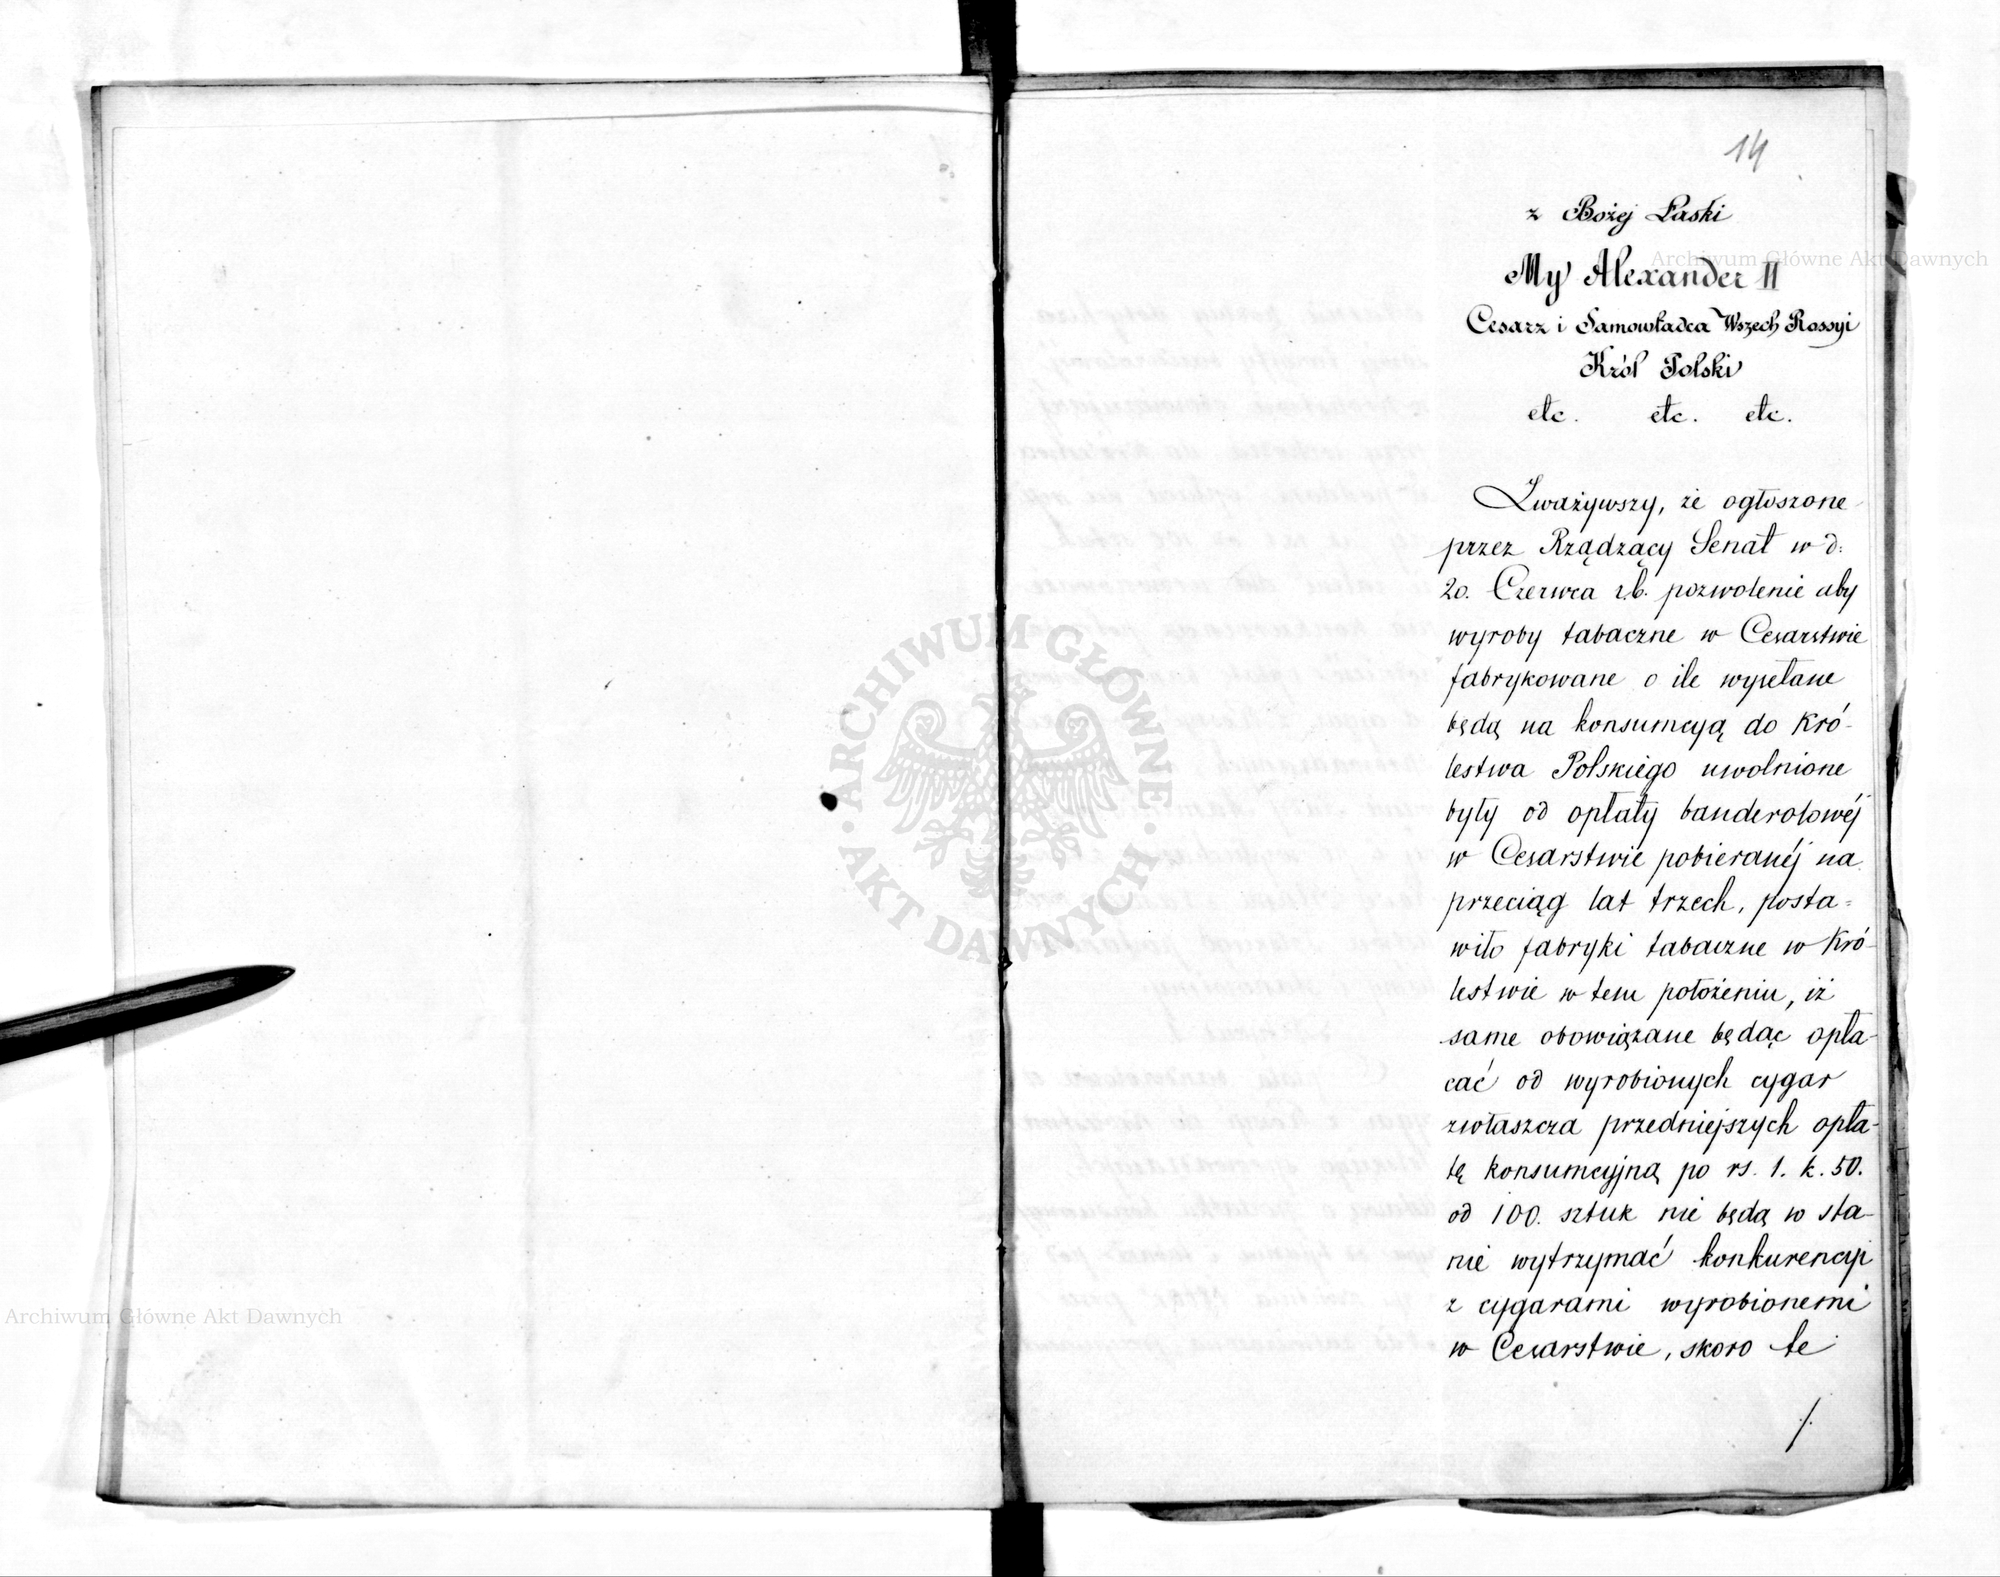 14
z Bożej Łaski
My Alexander II
Cesarz i Samowładca Wszech Rossyi
Król Polski
etc. etc. etc.
Zważywszy, że ogłoszone
przez Rządzący Senat w d:
20. Czerwca r.b. pozwolenie aby
wyroby tabaczne w Cesarstwie
fabrykowane o ile wysłane
będą na konsumcyą do Kró-
lestwa Polskiego uwolnione
były od opłaty banderolowéj
w Cesarstwie pobieranéj na
przeciąg lat trzech, posta=
wiło fabryki tabaczne w Kró-
lestwie w tem położeniu, iż
same obowiązane będąc opła-
cać od wyrobionych cygar
zwłaszcza przedniejszych opła-
tę konsumcyjną po rs. 1. k. 50.
od 100. sztuk nie będą w sta-
nie wytrzymać konkurencyi
z cygarami wyrobionemi
w Cesarstwie, skoro te
./.
ARCHIWUM GŁÓWNE
AKT DAWNYCH
Archiwum Główne Akt Dawnych
Archiwum Główne Akt Dawnych